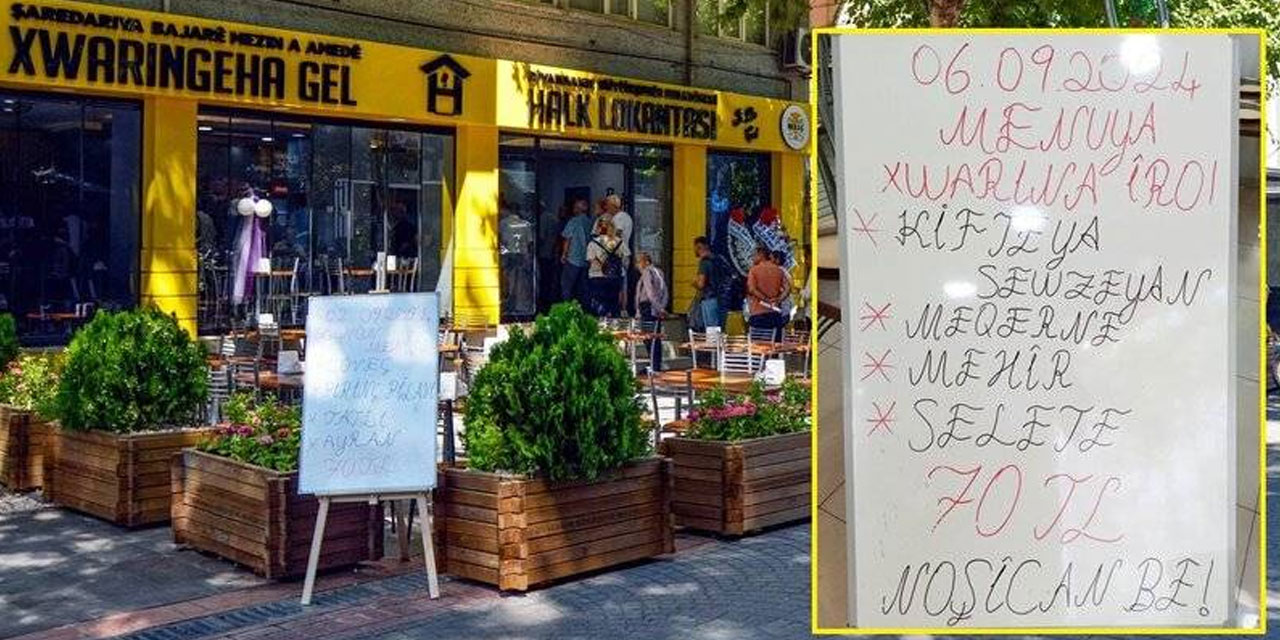 ŞAREDARIYA BAJARÊ MEZIN A AMEDÊ
XWARINGEHA GEL
DİYARBAKIR BÜYÜKŞEHİR BELEDİYESİ
HALK LOKANTASI
AYRAN
70 TL
06.09.2024
MENUYA
XWARINA ÎRO!
* KİFTEYA
SEWZEYAN
* MEQERNE
* MEHÎR
* SELETE
70 TL
NOŞİCAN BE!